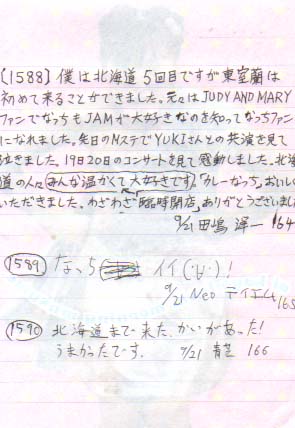 [1588] 僕は北海道5回目ですが東室蘭は
初めて来ることができました。元々はJUDY AND MARY
ファンでなっちもJAMが大好きなのを知ってなっちファン
になれました。先日のMステでYUKIさんとの共演を見て
泣きました。19日20日のコンサートを見て感動しました。北海
道の人々みんな温かくて大好きです。「カレーなっち」おいしく
いただきました。わざわざ「臨時開店」ありがとうございまし
9/21 田嶋洋一 164
1589 なっち イイ(·∀·)!
9/21 Neo 165
1590 北海道まで来た、かいがあった!
うまかったです。 9/21 青芝 166